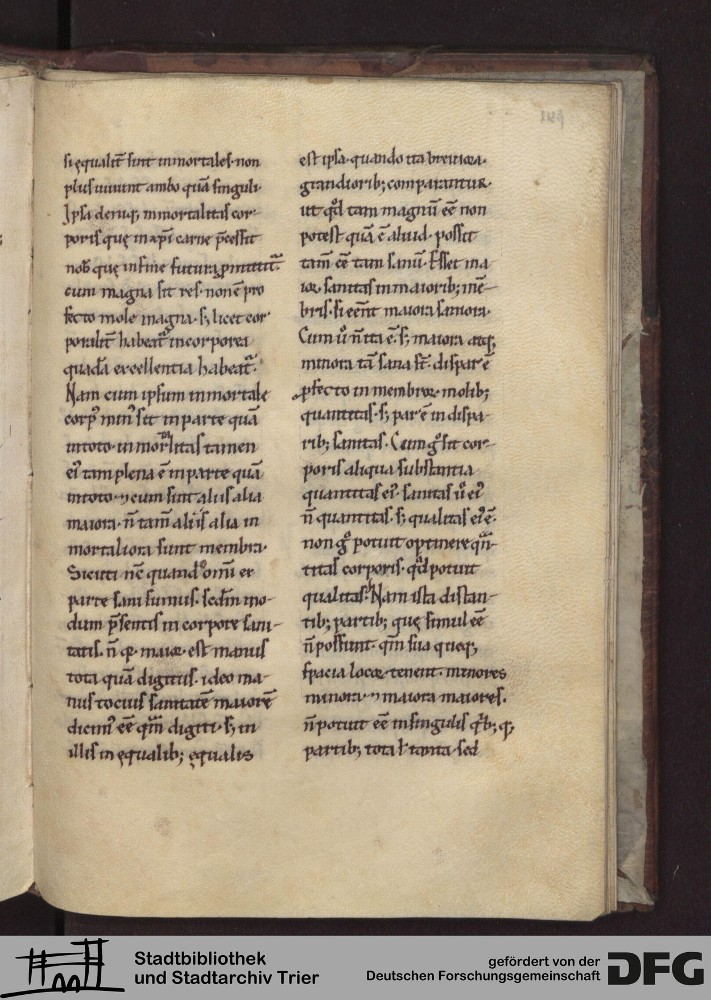 129
si ęqualit̄ sint inmortales· non
plus uiuunt ambo quā singuli·
Ipsa deniq; inmortalitas cor-
poris quę in xp̄i carne p̄cessit
nob̄ quę in fine futura ꝓmittit᷑·
cum magna sit res· non ē pro
fecto mole magna· s; licet cor
poralit̄ habeat᷑ incorporea
quadā excellentia habeat᷑·
Nam cum ipsum inmortale
corp᷒ min᷒ sit in parte quā
in toto· inmortalitas tamen
ei᷒ tam plena ē in parte quā
in toto· ⁊ cum sint aliis alia
maiora· n̄ tam̄ aliis alia in
mortaliora sunt membra·
Sicuti nc̄ quando omī ex
parte sani sumus· sedm̄ mo-
dum p̄sentis in corpore sani-
tatis· n̄ q maior est manus
tota quā digitus· ideo ma-
nus tocius sanitatē maiorē
dicim᷒ eē quam digiti· s; in
illis inęqualib; ęqualis
est ipsa· quando ita breuiora·
grandiorib; comparantur·
ut qd̄ tam magnū eē non
potest quā ē aliud· possit
tam̄ eē tam sanū· Esset ma
ior sanitas in maiorib; mē-
bris· si eent maiora saniora·
Cum ū n̄ ita ē· s; maiora atq;
minora tā sana st̄· dispar ē
ꝓfecto in membrorum molib;
quantitas· s; par ē in dispa-
rib; sanitas· Cum g̊ sit cor-
poris aliqua substantia
quantitas ei᷒· sanitas ū ei᷒
n̄ quantitas· s; qualitas ei᷒ ē·
non g̊ potuit optinere quan-
titas corporis· qd̄ potuit
qualitas· Nam ista distan-
tib; partib; quę simul eē
n̄ possunt· qm̄ sua queq;
spacia locorum tenent· minores
minora· ⁊ maiora maiores·
n̄ potuit eē in singulis qb;q;
partib; tota ł tanta· sed
Stadtbibliothek
und Stadtarchiv Trier
gefördert von der
Deutschen Forschungsgemeinschaft
DFG